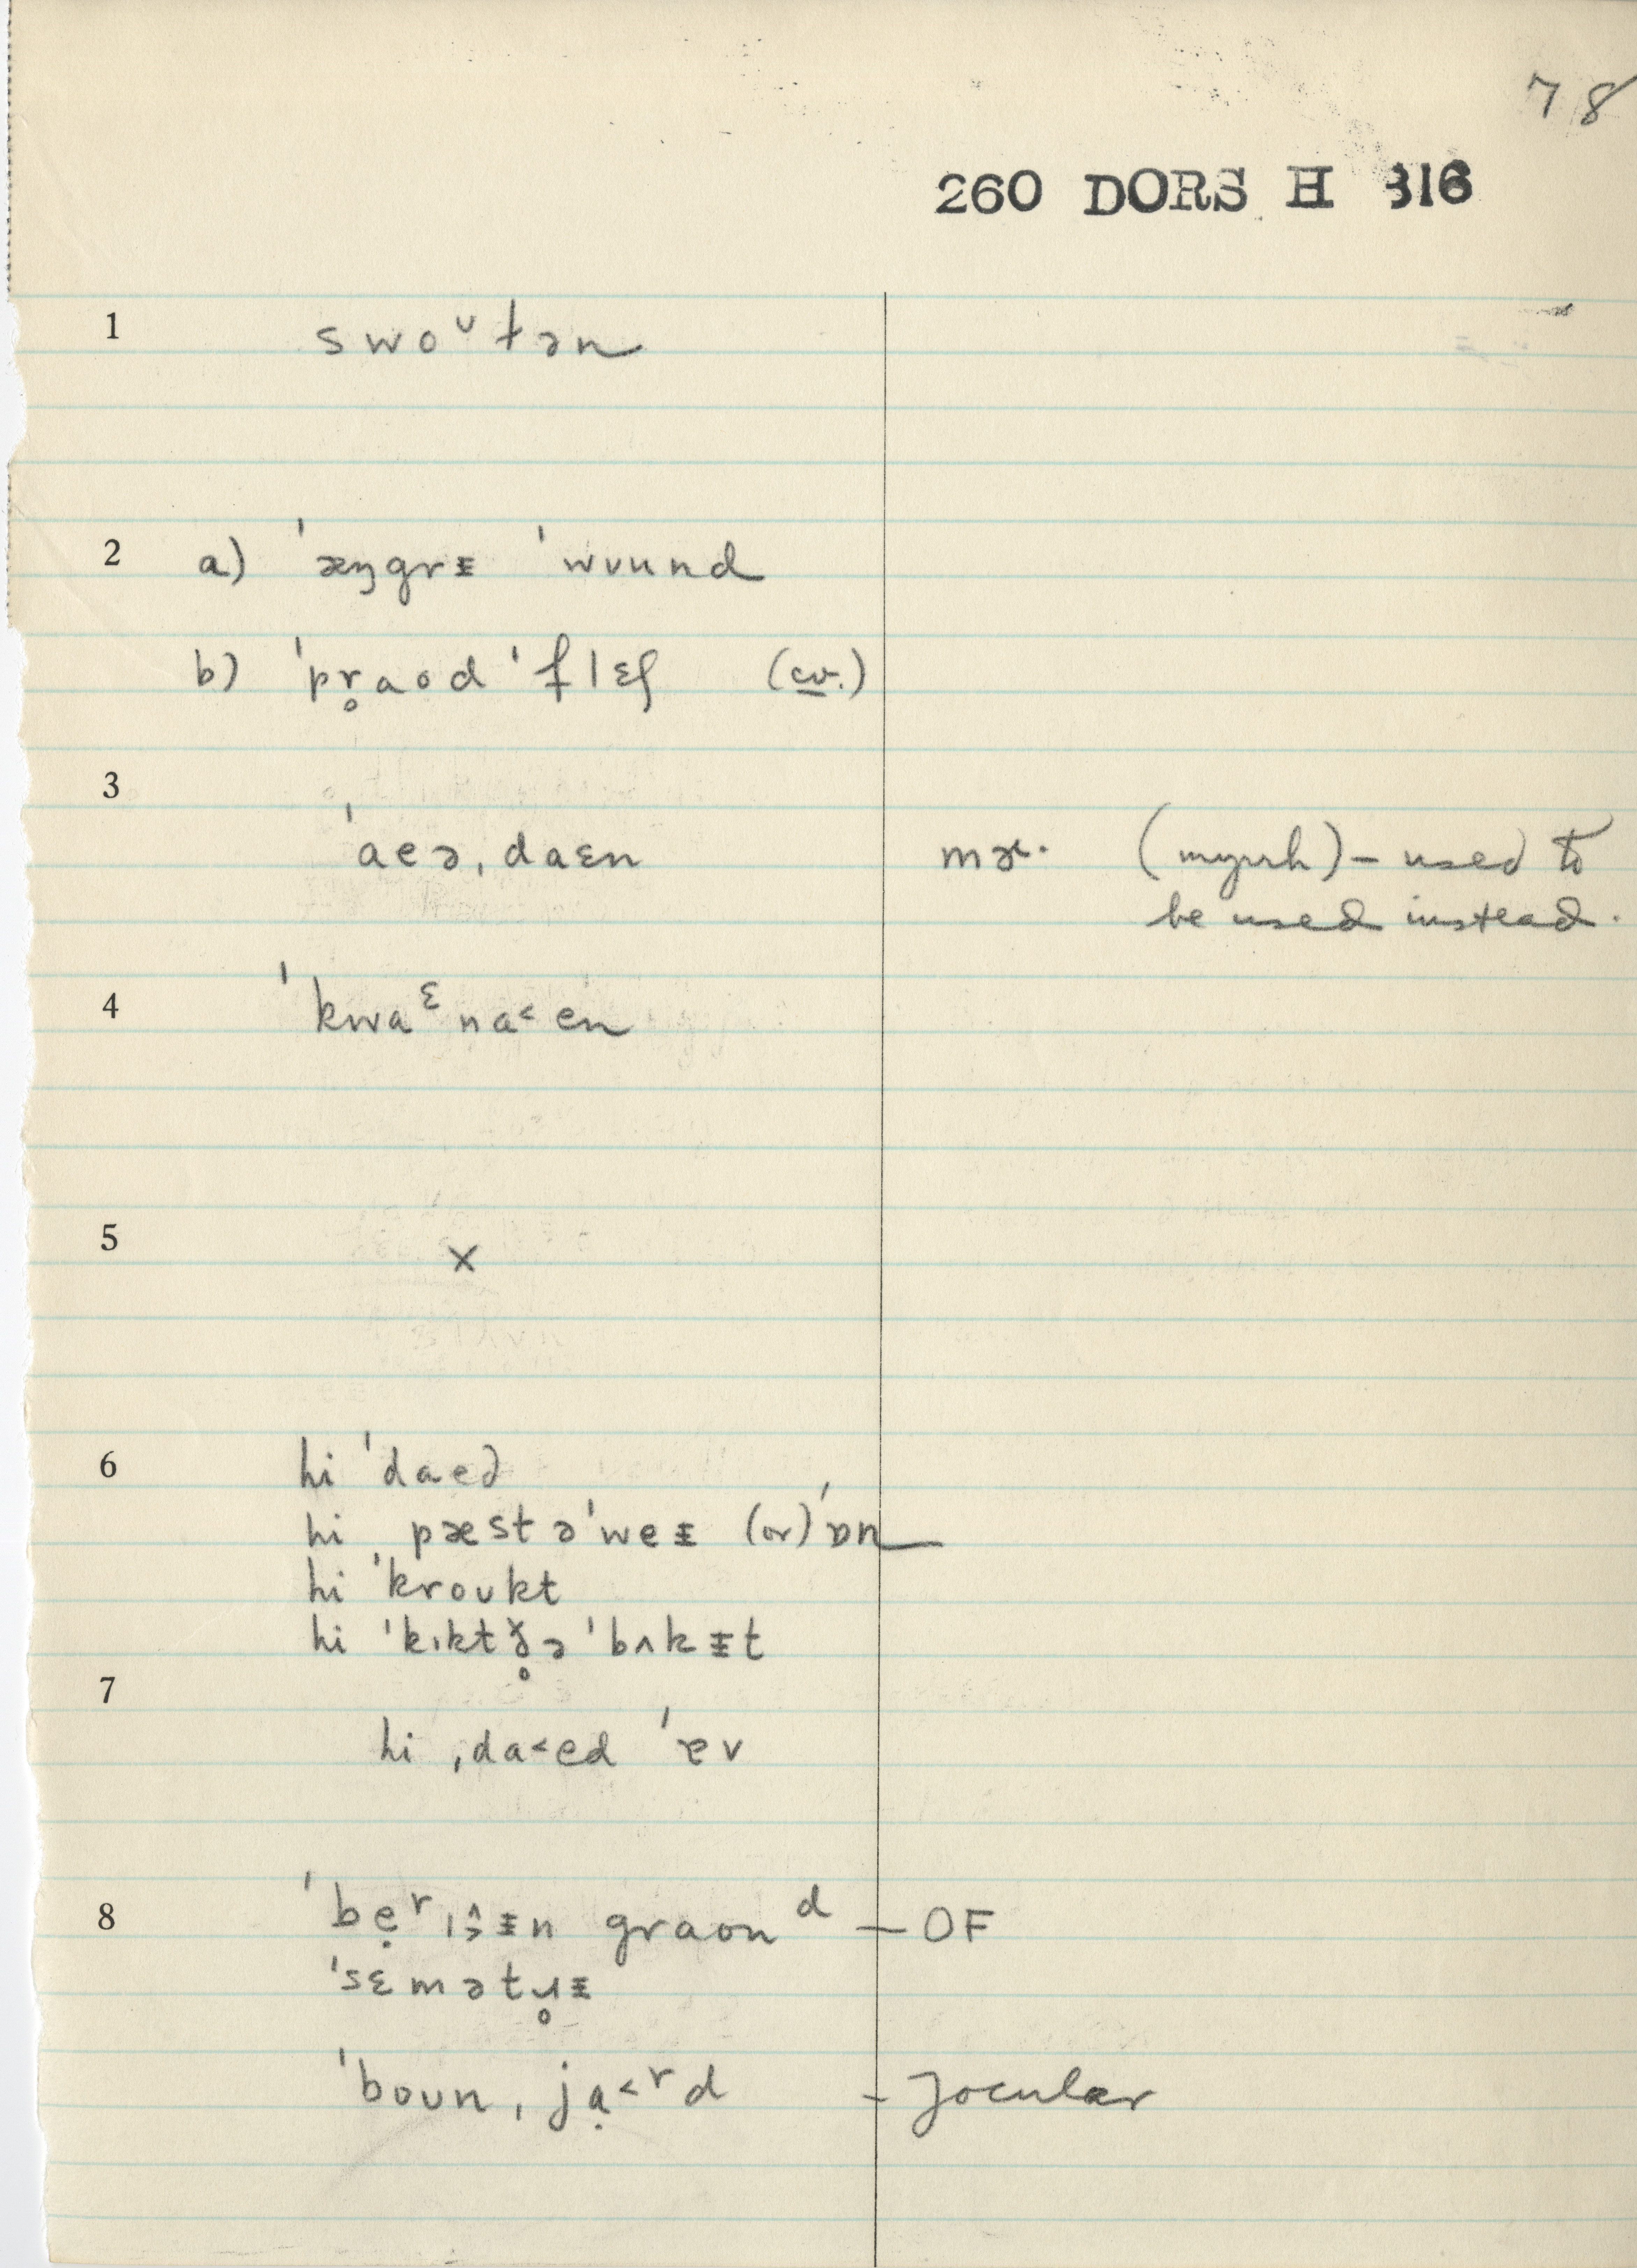 78
260 DORS H 316
1 swoᶷtən
2 a) ˈæŋgrᵻ ˈwuund
b) ˈpr̥aod ˈflɛʃ (cv.)
3
ˈaeə, daɛn mɚ· (myrrh) – used to
be used instead.
4 ˈkwaᵋna˂en
5 ×
6 hi ˈdaed
hi ˌpæst əˈweᵻ (or) ˈɒn
hi ˈkroukt
hi ˈkɪkt ð̥ə ˈbʌkᵻt
7
hi ˌda˂ed ˈɐv
8 ˈbẹʳ graonᵈ – OF
ˈsɛmətɹ̥ᵻ
ˈboun ˌjạ˂ʳd – Jocular